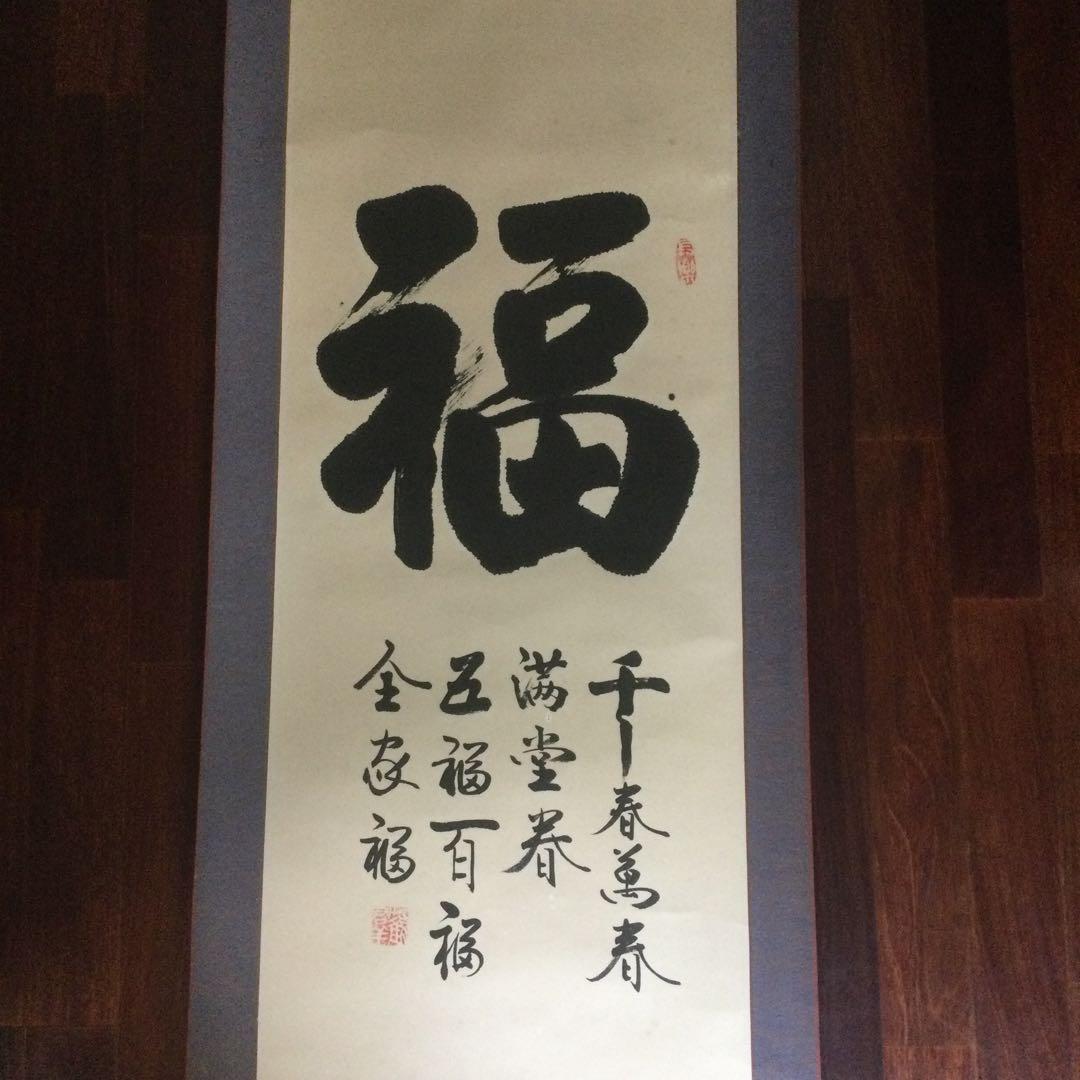 福
千春萬春
满堂春
五福百福
全家福